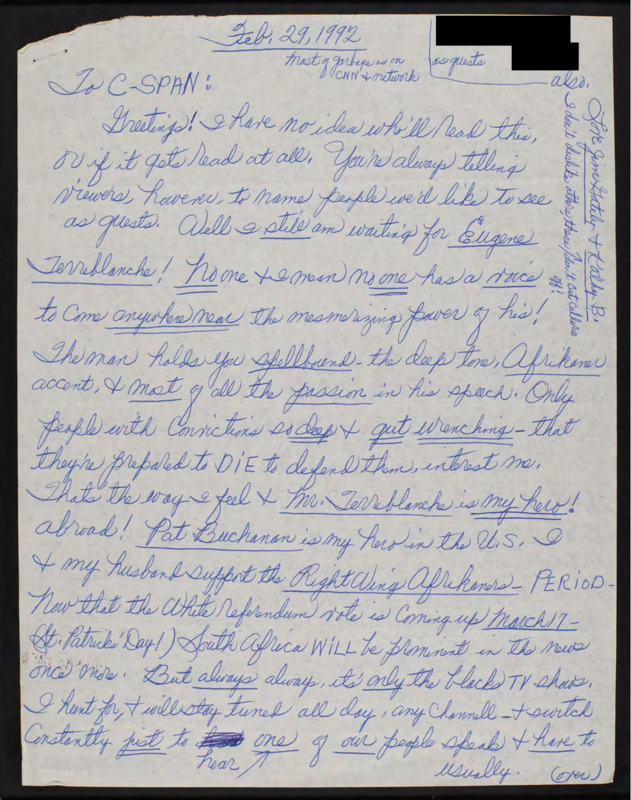 Feb. 29, 1992
most of garbage is on
CNN & network
as guests
also.
Love Jim Hately & Kelly B!
I don't dislike others, these
don't cut callers
off!
To C-SPAN:
Greetings! I have no idea who'll read this,
or if it gets read at all. You're always telling
viewers, however, to name people we'd like to see
as guests. Well I still am waiting for Eugene
Terreblanche! No one & I mean no one has a voice
to come anywhere near the mesmerizing power of his!
The man holds you spellbound - the deep tone, Afrikaner
accent, & most of all the passion in his speech. Only
people with convictions so deep & gut wrenching - that
they're prepared to DIE to defend them, interest me.
That's the way I feel & Mr. Terreblanche is my hero!
abroad! Pat Buchanan is my hero in the U.S. I
& my husband support the Right Wing Afrikaners - PERIOD -
Now that the White referendum vote is coming up March 17 -
St. Patrick's Day!) South Africa WILL be prominent in the news
once more. But always always, it's only the blacks TV shows.
I hunt for, & will stay tuned all day, any channel - & switch
constantly just to hear one of our people speak & have to
usually. (over)